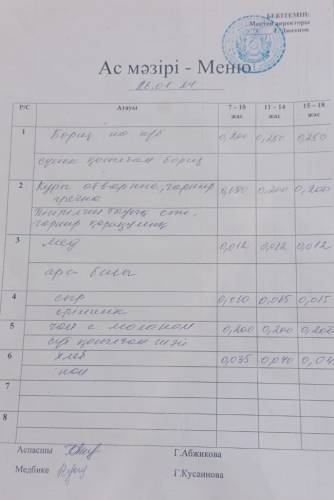 БЕКІТЕМІН:
Мектеп директоры
Ас мәзірі - Меню
26.01.24
Р/С Атауы 7 – 10 жас 11 – 14 жас 15 – 18 жас
1 Борщ на к/б 0,200 0,250 0,250
қосылған борщ
2 Куры отварные, гарнир гречка 0,150 0,200 0,200
Пісірілген тауық еті, гарнир қарақұмық
3 мед 0,012 0,012 0,012
ара балы
4 сыр 0,010 0,015 0,015
ірімшік
5 чай с молоком 0,200 0,200 0,200
сүт қосылған шәй
6 хлеб 0,035 0,040
нан
7
8
Аспазшы Г.Абжикова
Медбике Г.Кусаинова